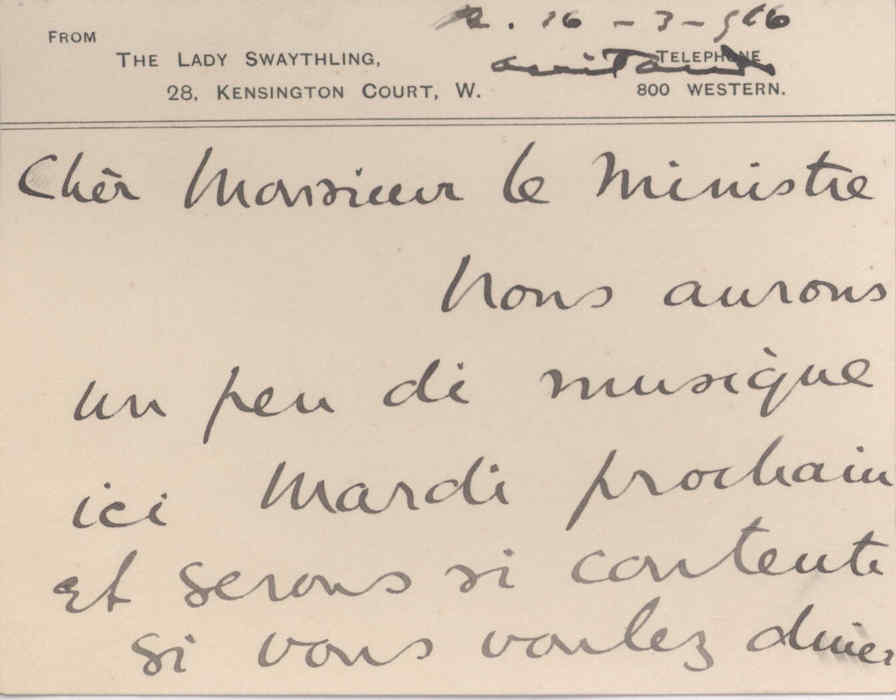 FROM
THE LADY SWAYTHLING,
28. KENSINGTON COURT, W.
TELEPHONE
800 WESTERN.
Cher Monsieur le Ministre
Nous aurons
un peu de musique
ici Mardi prochain
et serons si contente
si vous voulez diner